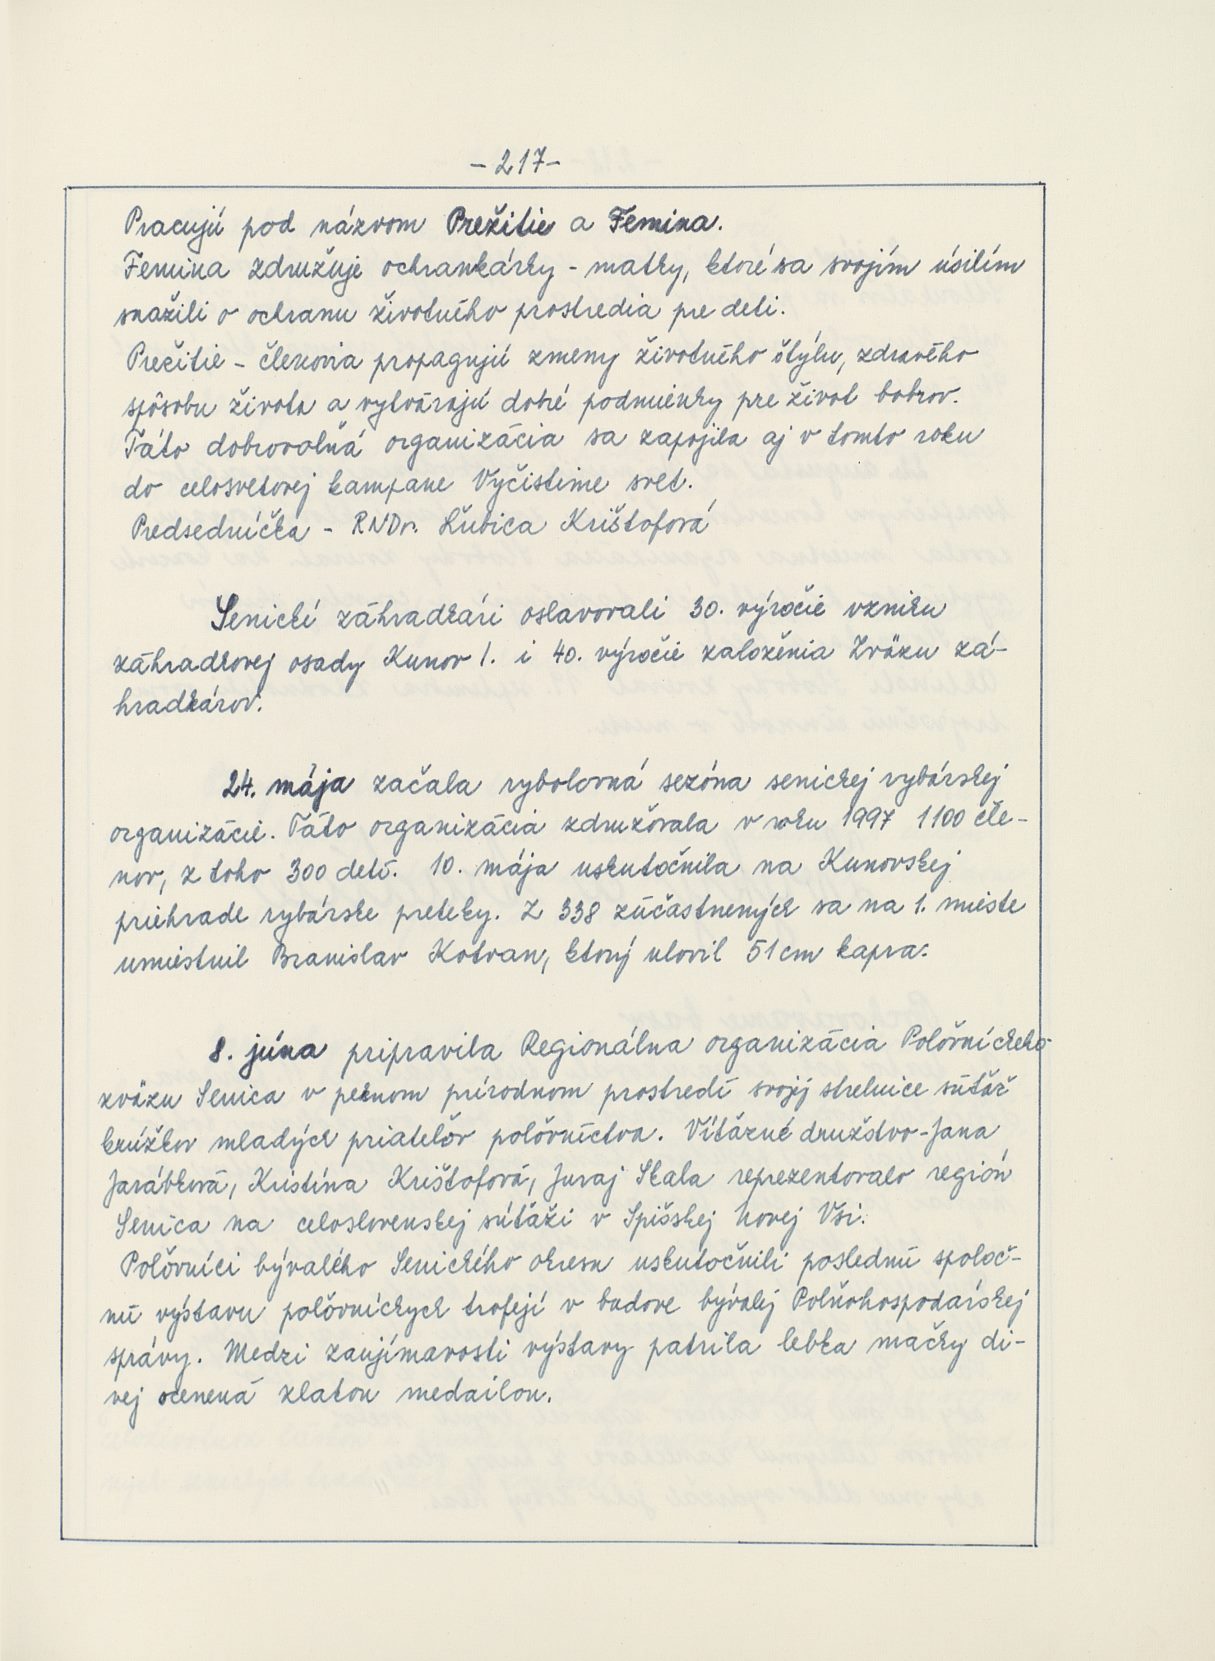 -217-
Pracujú pod názvom Prežitie a Femina.
Femina združuje ochranárky - matky, ktoré sa svojím úsilím
snažili o ochranu životného prostredia pre deti.
Prežitie - členovia propagujú zmeny životného štýlu, zdravého
spôsobu života a vytvárajú dobré podmienky pre život bobrov.
Táto dobrovoľná organizácia sa zapojila aj v tomto roku
do celosvetovej kampane Vyčistime svet.
Predsedníčka - RNDr. Ľubica Krištofová
Senickí záhradkári oslavovali 30. výročie vzniku
záhradkovej osady Kunov I. i 40. výročie založenia Zväzu zá-
hradkárov.
24. mája začala rybolovná sezóna senickej rybárskej
organizácie. Táto organizácia združovala v roku 1997 1100 čle-
nov, z toho 300 detí. 10. mája uskutočnila na Kunovskej
priehrade rybárske preteky. Z 338 zúčastnených sa na 1. mieste
umiestnil Branislav Kotvan, ktorý ulovil 51 cm kapra.
8. júna pripravila Regionálna organizácia Poľovníckeho
zväzu Senica v peknom prírodnom prostredí svojej strelnice súťaž
krúžkov mladých priateľov poľovníctva. Víťazné družstvo - Jana
Jarábková, Kristína Krištofová, Juraj Skala reprezentovalo región
Senica na celoslovenskej súťaži v Spišskej Novej Vsi.
Poľovníci bývalého Senického okresu uskutočnili poslednú spoloč-
nú výstavu poľovníckych trofejí v budove bývalej Poľnohospodárskej
správy. Medzi zaujímavosti výstavy patrila lebka mačky di-
vej ocenená zlatou medailou.